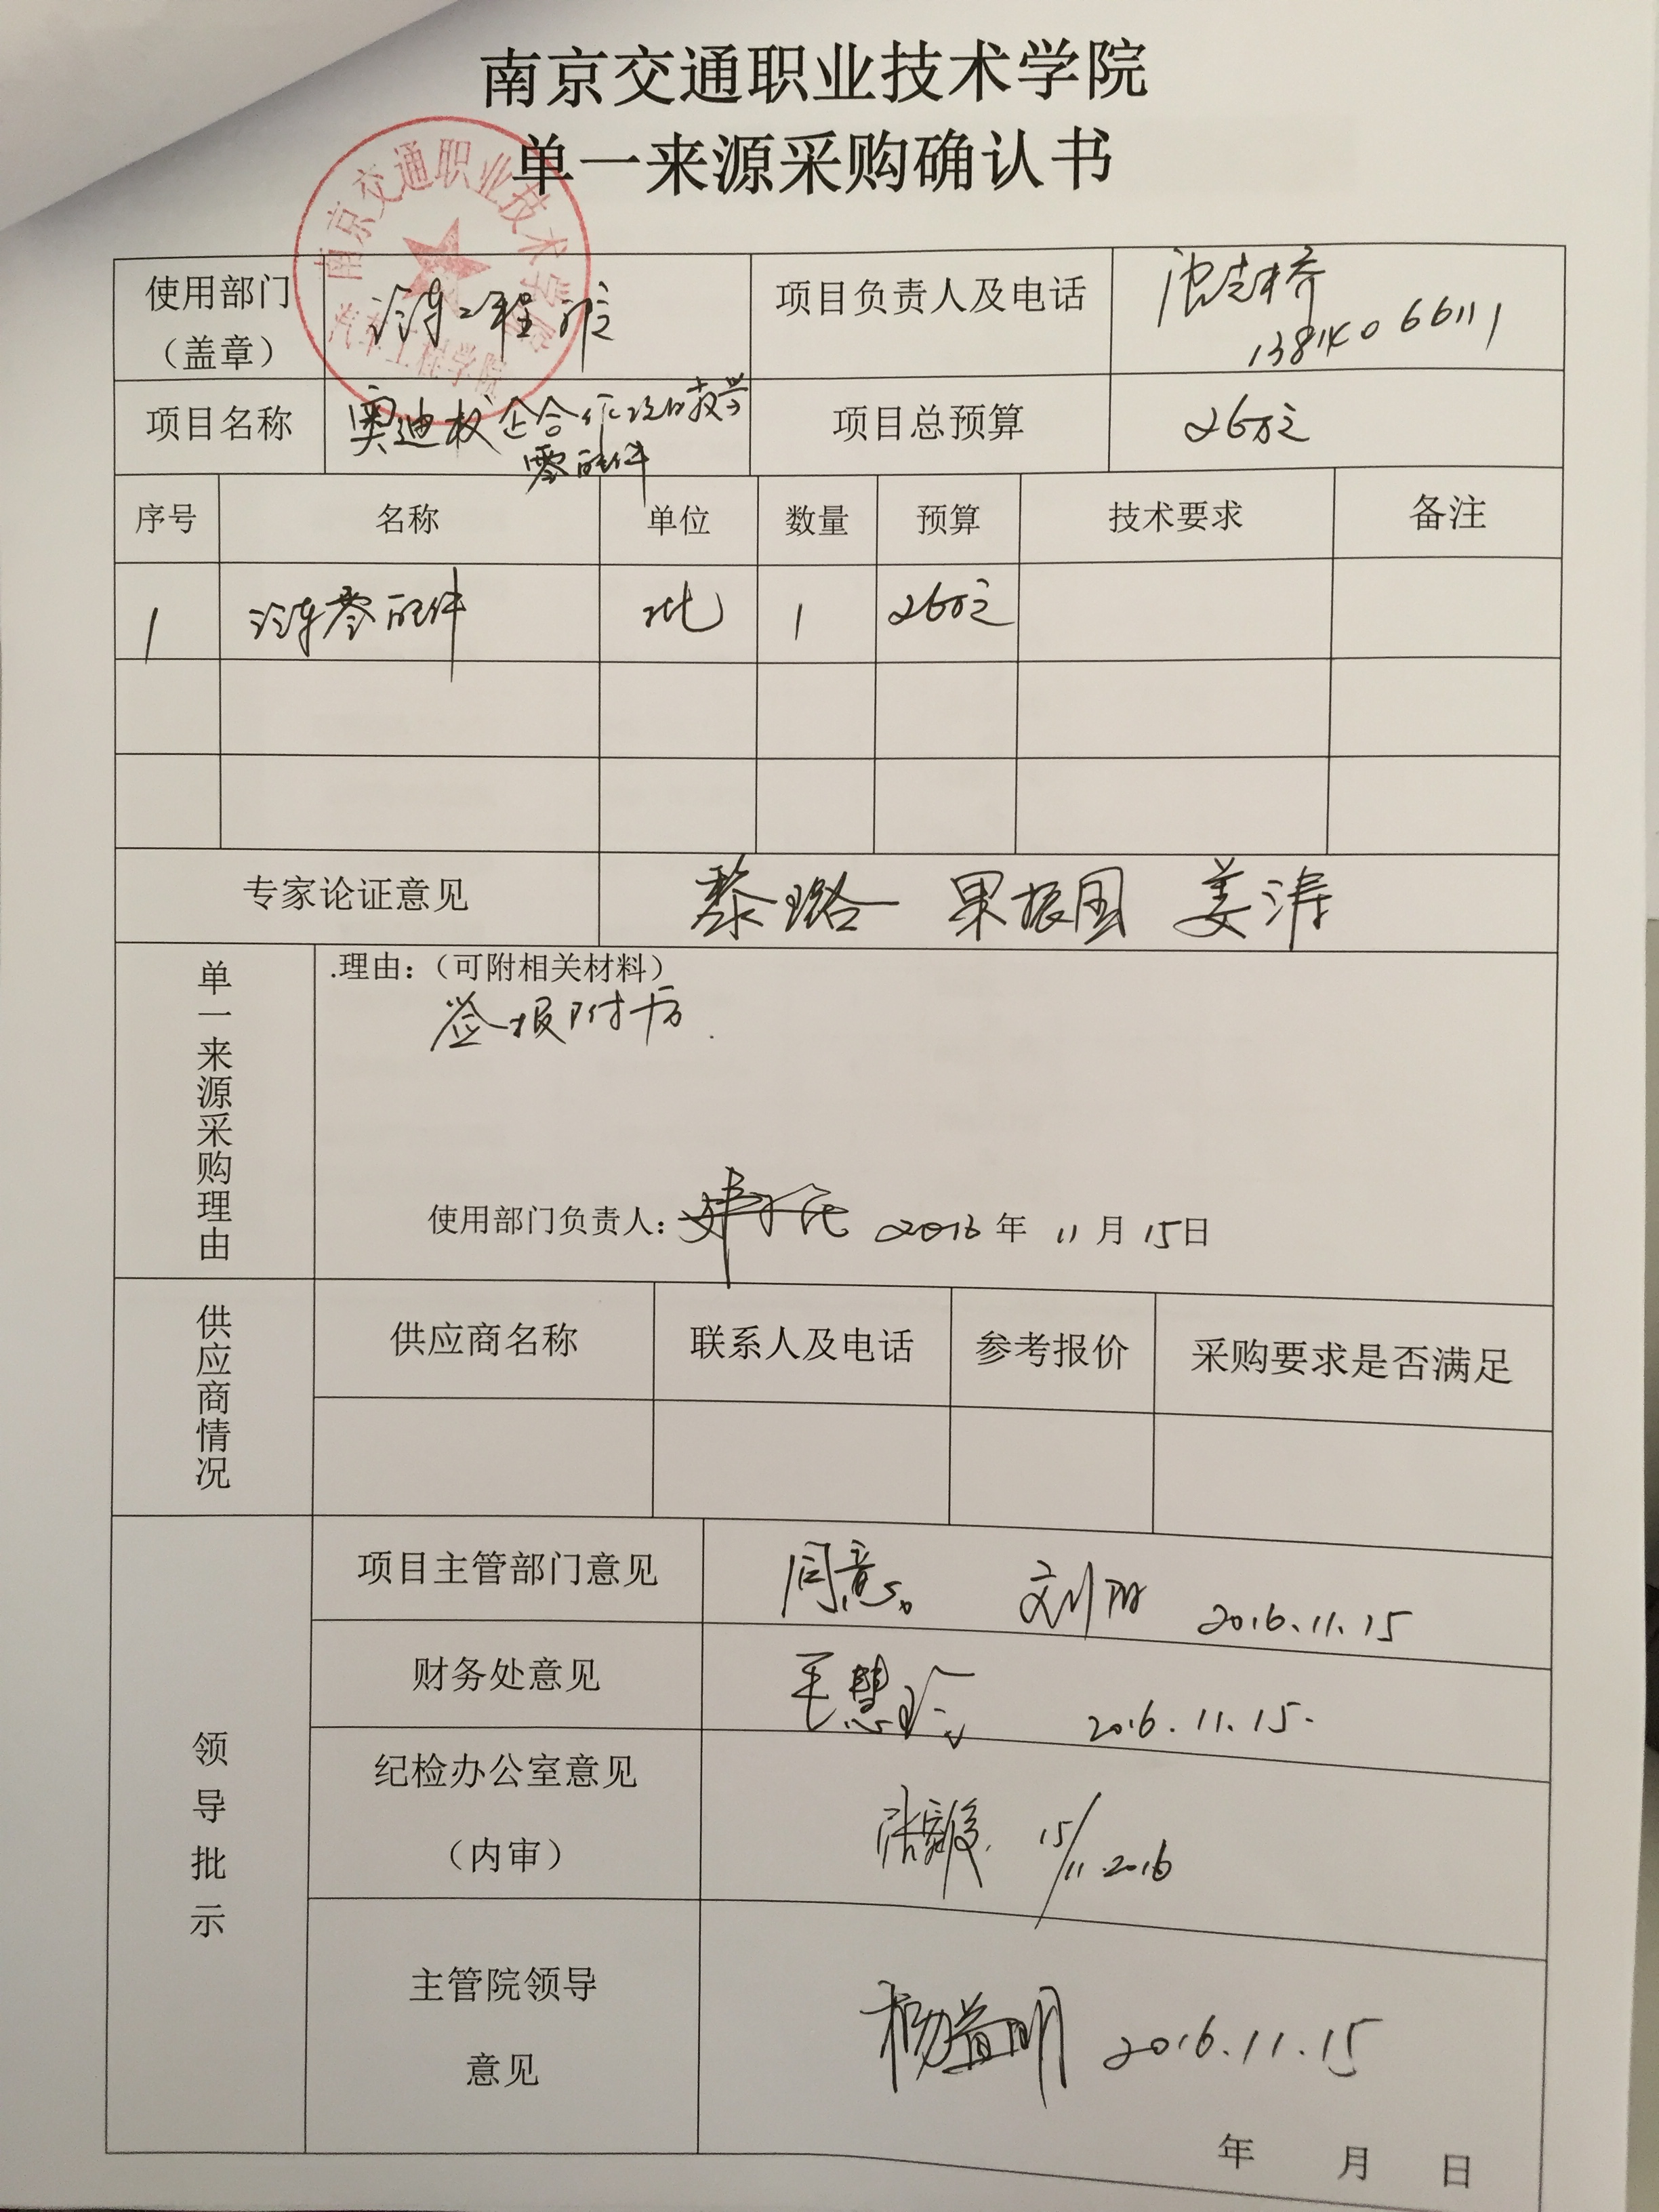 南京交通职业技术学院
单一来源采购确认书
南京交通职业技术学院
汽车工程学院
使用部门
（盖章）
汽车工程学院
项目负责人及电话
13814066111
项目名称
奥迪校企合作项目教学
零配件
项目总预算
26万元
序号 名称 单位 数量 预算 技术要求 备注
1 汽车零配件 批 1 26万元
专家论证意见
黎璐 果振国 姜涛
单一来源采购理由
.理由：（可附相关材料）
签报附后.
使用部门负责人： 2016年 11月 15日
供应商情况
供应商名称 联系人及电话 参考报价 采购要求是否满足
领导批示
项目主管部门意见
同意。 刘阳 2016.11.15
财务处意见
王慧玲 2016.11.15.
纪检办公室意见
（内审）
15/11.2016
主管院领导
意见
杨益明 2016.11.15
年 月 日